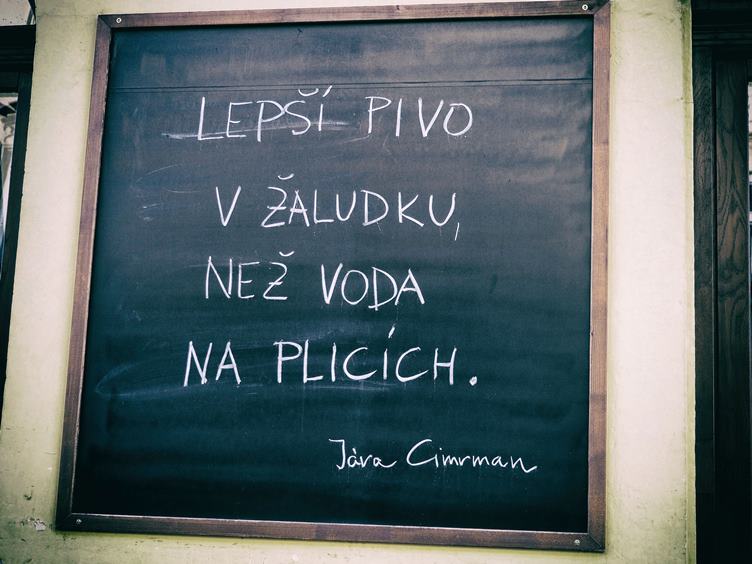 LEPŠÍ PIVO
V ŽALUDKU,
NEŽ VODA
NA PLICÍCH.
Jára Cimrman